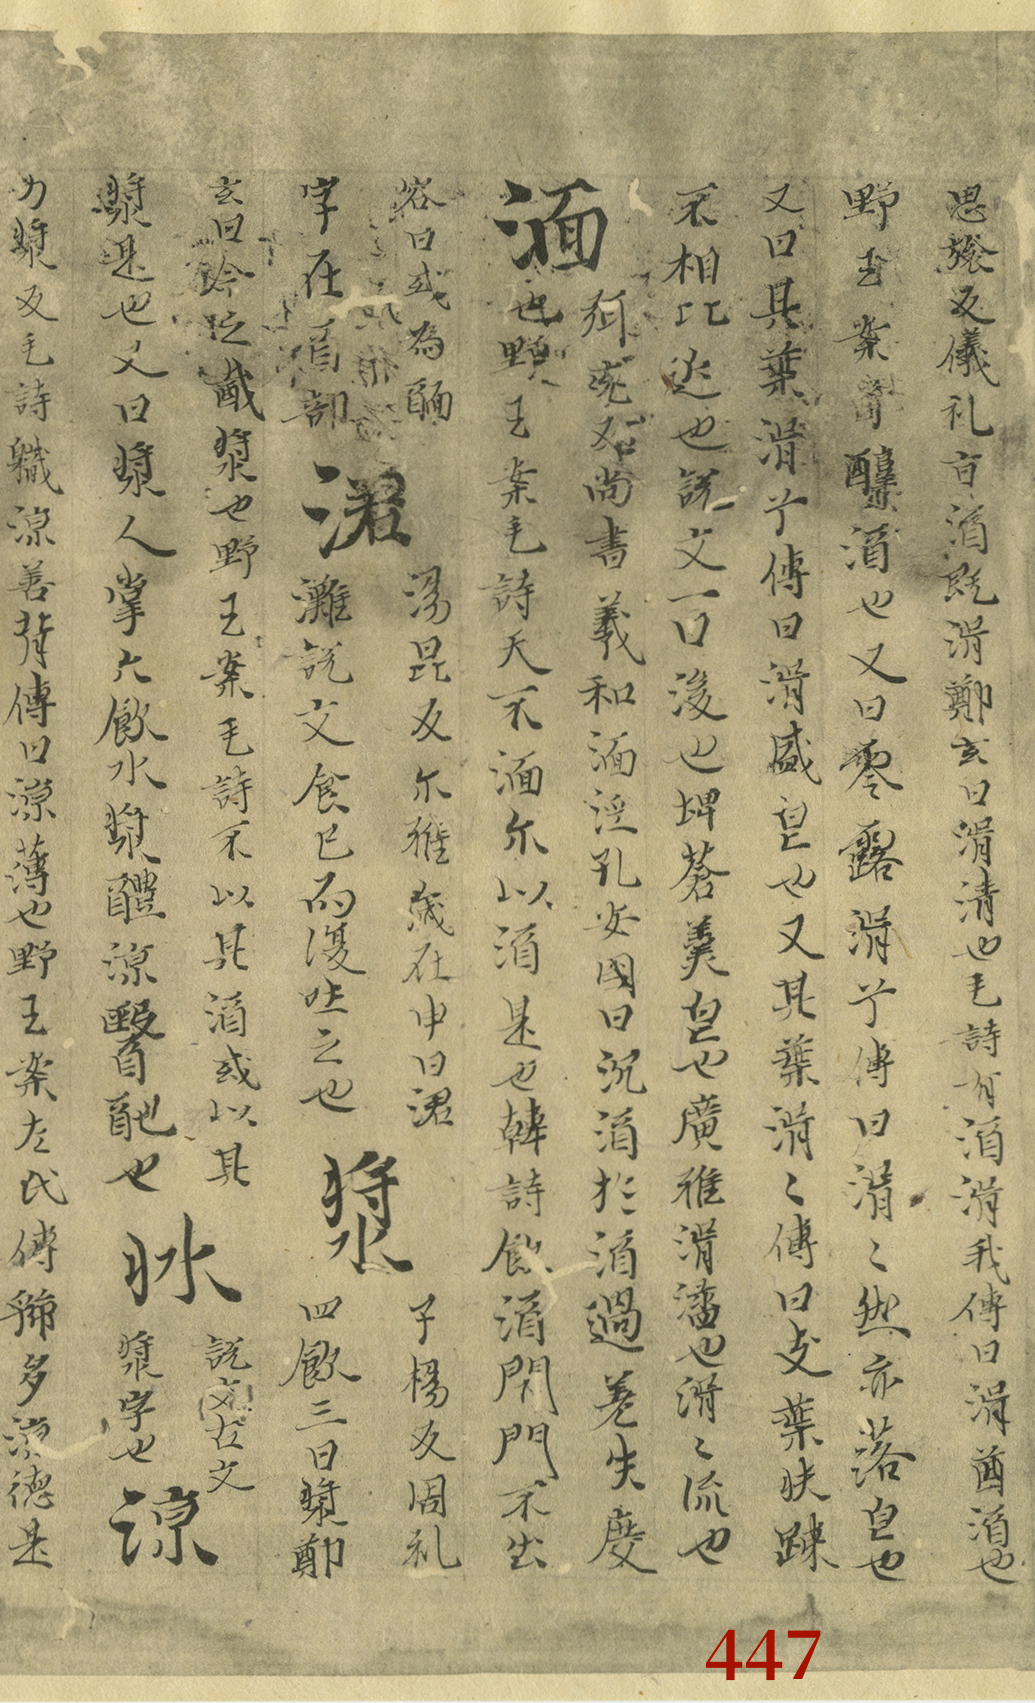 思旅反儀礼旨湑既湑鄭玄曰湑清也毛詩有酒湑我傳曰湑莤酒也
野王案醸酒也又曰零露湑兮傳曰湑〻然亦落皀也
又曰其葉湑兮傳曰湑盛皀也又其葉湑〻傳曰支葉扶踈
不相比近也説文一曰浚也埤蒼美皀也廣雅湑潘也湑〻流也
湎
弥兖反尚書羲和湎淫孔安國曰沉酒於酒過差失度
也野王案毛詩天不湎尓以酒是也韓詩飲酒閇門不出
容曰或為醽
字在酉部
涒
湯昆反尓雅歳在申曰涒
灘説文食已而復吐之也
漿
子楊反周礼
四飲三曰漿鄭
玄曰今之酨漿也野王案毛詩不以其酒或以其
漿是也又曰漿人掌六飲水漿醴涼醫酏也
㳄
説文古文
漿字也
涼
力漿反毛詩職涼善背傳曰涼薄也野王案左氏傳虢多涼德是
447